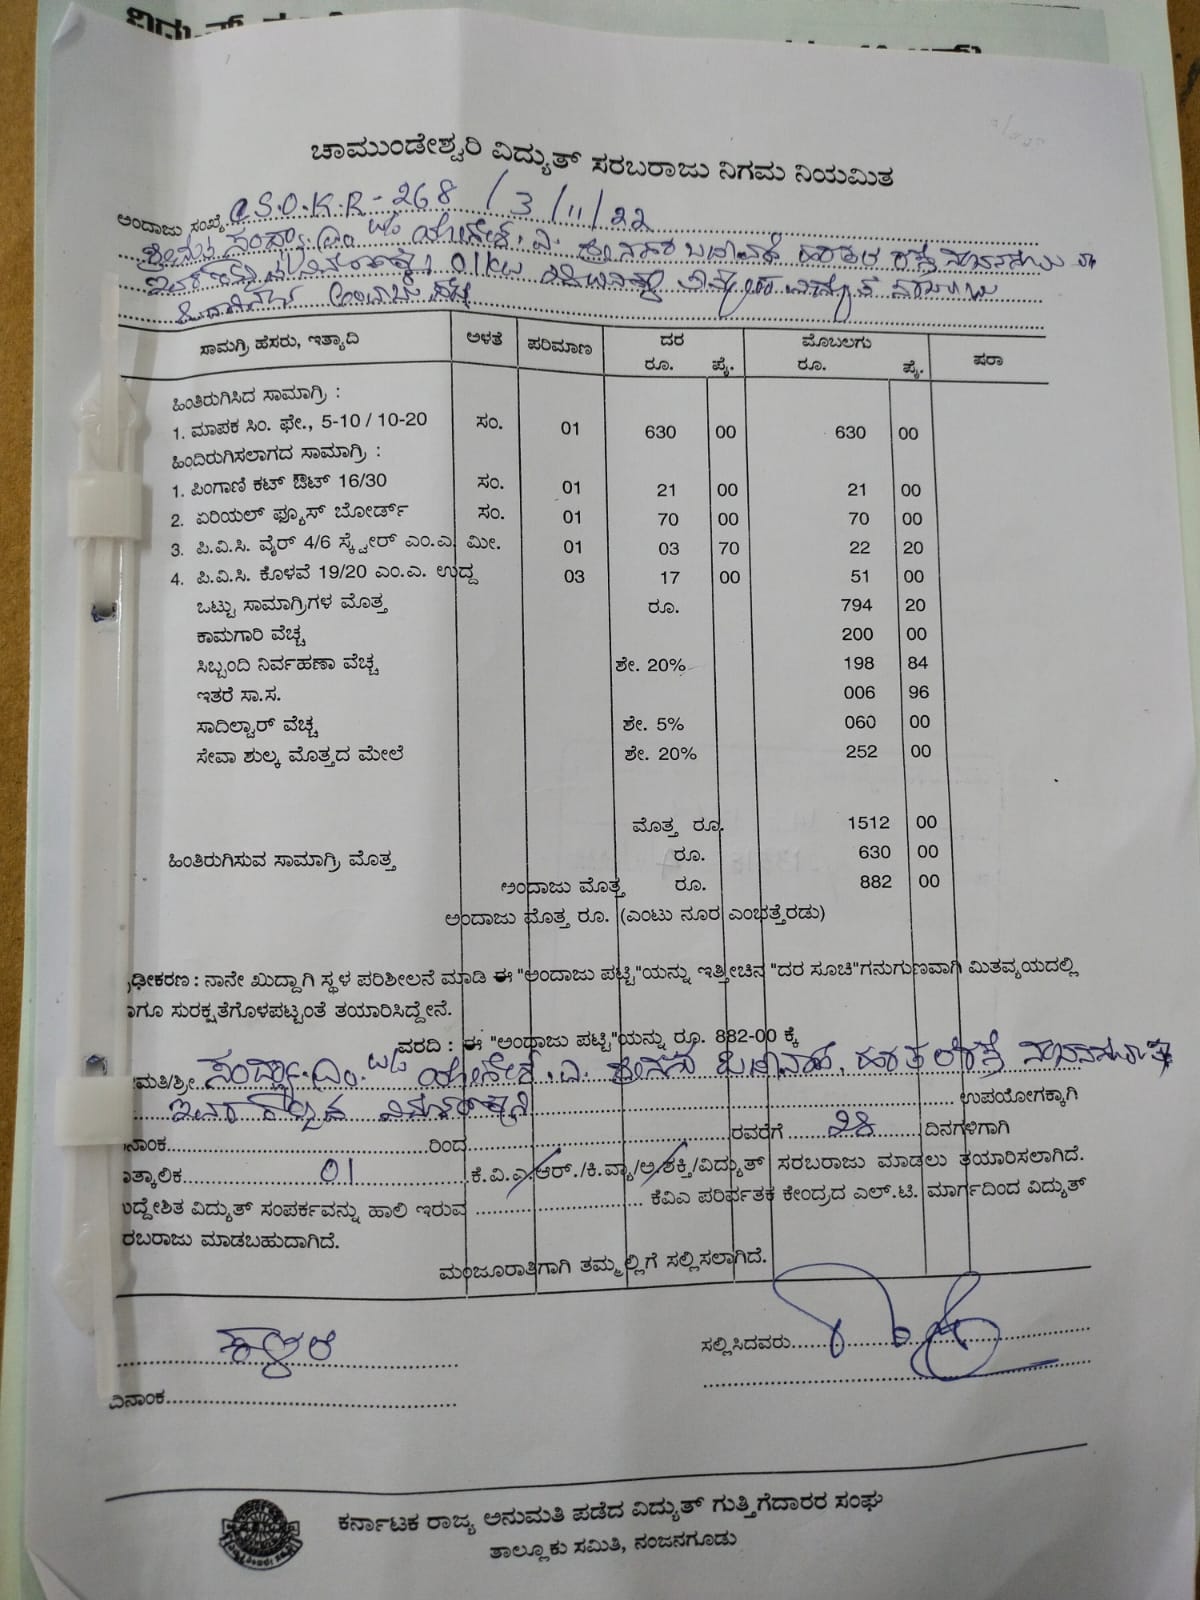 ಚಾಮುಂಡೇಶ್ವರಿ ವಿದ್ಯುತ್ ಸರಬರಾಜು ನಿಗಮ ನಿಯಮಿತ
ಅಂದಾಜು ಸಂಖ್ಯೆ C.S.O.K.R - 268 / 3/11/22
ಸಾಮಗ್ರಿ ಹೆಸರು, ಇತ್ಯಾದಿ ಅಳತೆ ಪರಿಮಾಣ ದರ ಮೊಬಲಗು ಷರಾ
ರೂ. ಪೈ. ರೂ. ಪೈ.
ಹಿಂತಿರುಗಿಸಿದ ಸಾಮಾಗ್ರಿ :
1. ಮಾಪಕ ಸಿಂ. ಫೇ., 5-10 / 10-20 ಸಂ. 01 630 00 630 00
ಹಿಂದಿರುಗಿಸಲಾಗದ ಸಾಮಾಗ್ರಿ :
1. ಪಿಂಗಾಣಿ ಕಟ್ ಔಟ್ 16/30 ಸಂ. 01 21 00 21 00
2. ಏರಿಯಲ್ ಫ್ಯೂಸ್ ಬೋರ್ಡ್ ಸಂ. 01 70 00 70 00
3. ಪಿ.ವಿ.ಸಿ. ವೈರ್ 4/6 ಸ್ಕ್ವೇರ್ ಎಂ.ಎ. ಮೀ. 01 03 70 22 20
4. ಪಿ.ವಿ.ಸಿ. ಕೊಳವೆ 19/20 ಎಂ.ಎ. ಉದ್ದ 03 17 00 51 00
ಒಟ್ಟು ಸಾಮಾಗ್ರಿಗಳ ಮೊತ್ತ ರೂ. 794 20
ಕಾಮಗಾರಿ ವೆಚ್ಚ 200 00
ಸಿಬ್ಬಂದಿ ನಿರ್ವಹಣಾ ವೆಚ್ಚ ಶೇ. 20% 198 84
ಇತರೆ ಸಾ.ಸ. 006 96
ಸಾದಿಲ್ವಾರ್ ವೆಚ್ಚ ಶೇ. 5% 060 00
ಸೇವಾ ಶುಲ್ಕ ಮೊತ್ತದ ಮೇಲೆ ಶೇ. 20% 252 00
ಮೊತ್ತ ರೂ. 1512 00
ಹಿಂತಿರುಗಿಸುವ ಸಾಮಾಗ್ರಿ ಮೊತ್ತ ರೂ. 630 00
ಅಂದಾಜು ಮೊತ್ತ ರೂ. 882 00
ಅಂದಾಜು ಮೊತ್ತ ರೂ. (ಎಂಟು ನೂರ ಎಂಭತ್ತೆರಡು)
ಢೀಕರಣ : ನಾನೇ ಖುದ್ದಾಗಿ ಸ್ಥಳ ಪರಿಶೀಲನೆ ಮಾಡಿ ಈ "ಅಂದಾಜು ಪಟ್ಟಿ"ಯನ್ನು ಇತ್ತೀಚಿನ "ದರ ಸೂಚಿ"ಗನುಗುಣವಾಗಿ ಮಿತವ್ಯಯದಲ್ಲಿ
ಾಗೂ ಸುರಕ್ಷತೆಗೊಳಪಟ್ಟಂತೆ ತಯಾರಿಸಿದ್ದೇನೆ.
ವರದಿ : ಈ "ಅಂದಾಜು ಪಟ್ಟಿ"ಯನ್ನು ರೂ. 882-00 ಕ್ಕೆ
ಮತಿ/ಶ್ರೀ. ಸಂಧ್ಯಾ.ಎಂ. w/o ಯೋಗೇಶ.ವಿ.
ಉಪಯೋಗಕ್ಕಾಗಿ
ನಾಂಕ ರಿಂದ ರವರೆಗೆ ೨೮ ದಿನಗಳಿಗಾಗಿ
ಾತ್ಕಾಲಿಕ 01 ಕೆ.ವಿ.ಎ.ಆರ್./ಕಿ.ವ್ಯಾ/ಅ.ಶಕ್ತಿ/ವಿದ್ಯುತ್ ಸರಬರಾಜು ಮಾಡಲು ತಯಾರಿಸಲಾಗಿದೆ.
ುದ್ದೇಶಿತ ವಿದ್ಯುತ್ ಸಂಪರ್ಕವನ್ನು ಹಾಲಿ ಇರುವ ಕೆವಿಎ ಪರಿರ್ವತಕ ಕೇಂದ್ರದ ಎಲ್.ಟಿ. ಮಾರ್ಗದಿಂದ ವಿದ್ಯುತ್
ರಬರಾಜು ಮಾಡಬಹುದಾಗಿದೆ.
ಮಂಜೂರಾತಿಗಾಗಿ ತಮ್ಮಲ್ಲಿಗೆ ಸಲ್ಲಿಸಲಾಗಿದೆ.
ಸಲ್ಲಿಸಿದವರು
ದಿನಾಂಕ
ಕರ್ನಾಟಕ ರಾಜ್ಯ ಅನುಮತಿ ಪಡೆದ ವಿದ್ಯುತ್ ಗುತ್ತಿಗೆದಾರರ ಸಂಘ
ತಾಲ್ಲೂಕು ಸಮಿತಿ, ನಂಜನಗೂಡು